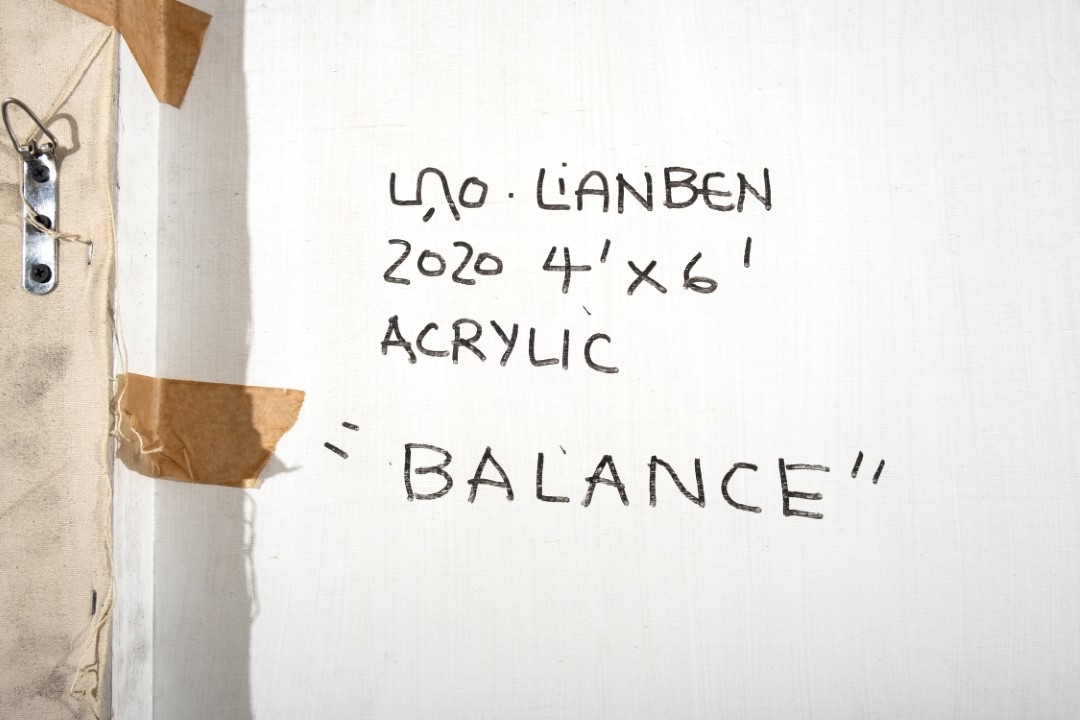 LAO · LiANBEN
2020 4' x 6'
ACRYLIC
"BALANCE"